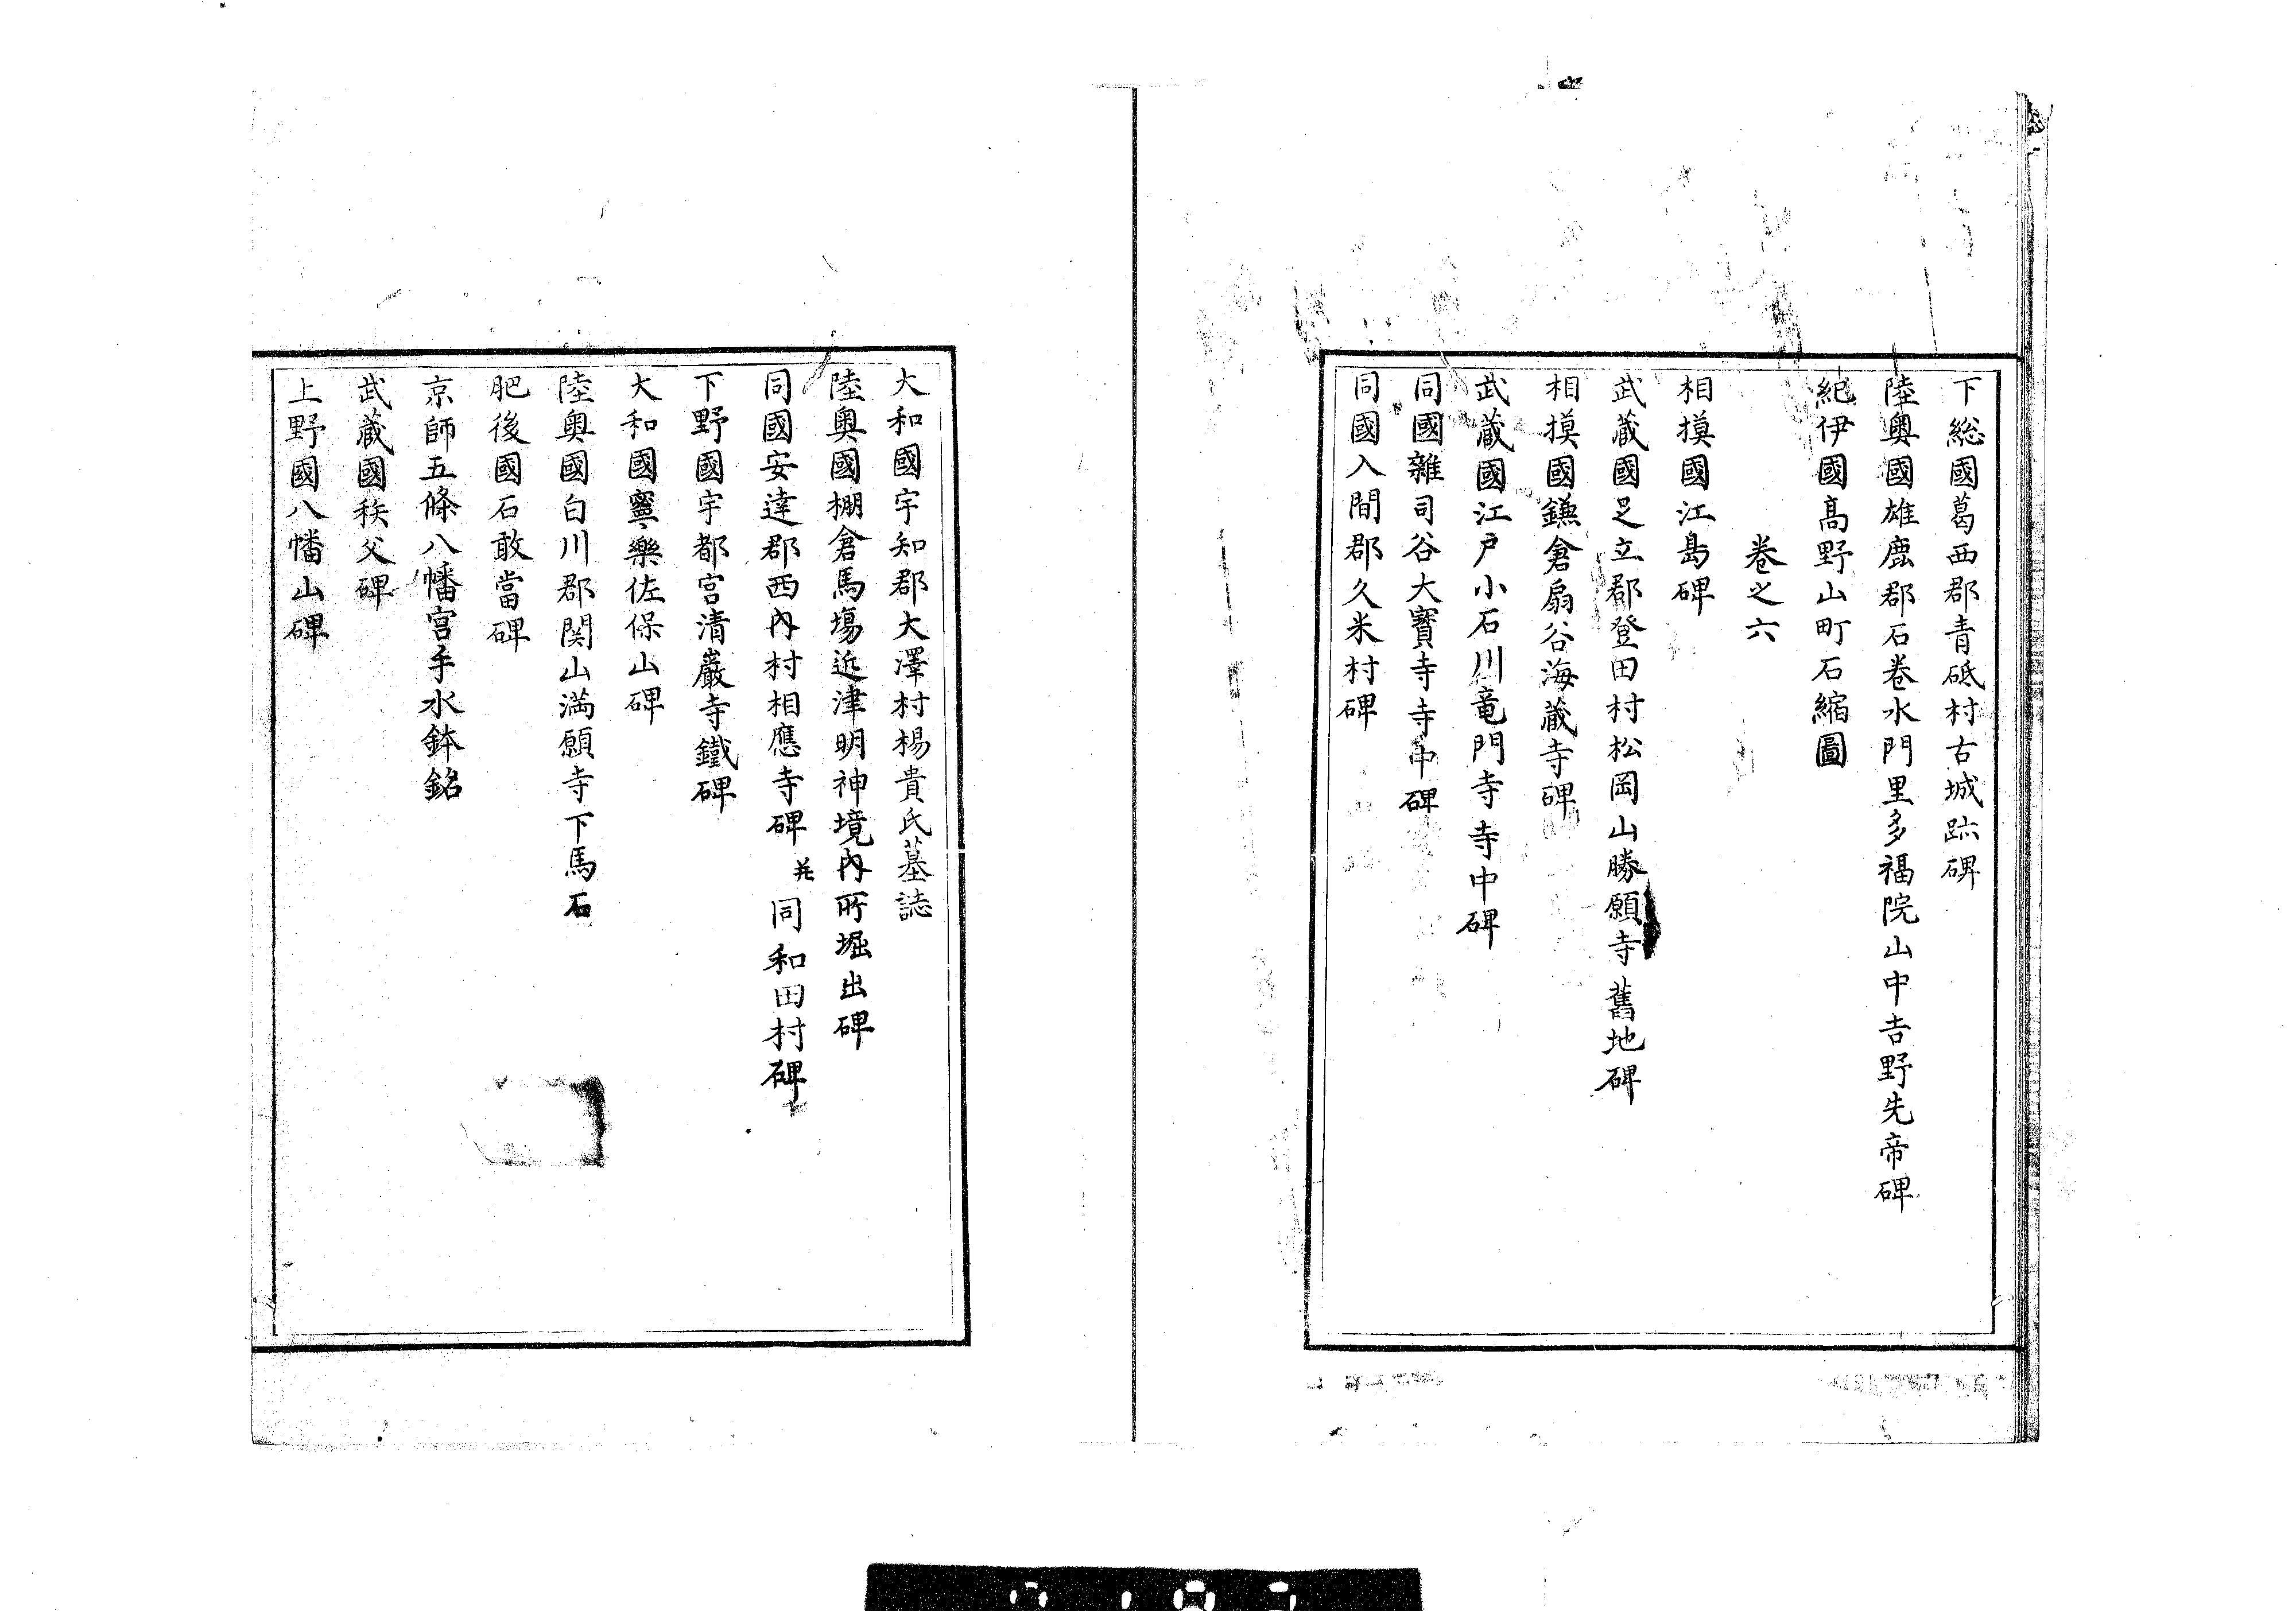 下総國葛西郡青砥村古城跡碑
陸奥國雄鹿郡石巻水門里多福院山中吉野先帝碑
紀伊國髙野山町石縮圖
巻之六
相摸國江島碑
武藏國足立郡登田村松岡山勝願寺舊地碑
相摸國鎌倉扇谷海藏寺碑
武藏國江戸小石川竜門寺寺中碑
同國雜司谷大寳寺寺中碑
同國入間郡久米村碑
大和國宇知郡大澤村楊貴氏墓誌
陸奥國棚倉馬塲近津明神境内所堀出碑
同國安達郡西内村相應寺碑 并 同和田村碑
下野國宇都宮清巖寺鐵碑
大和國寧樂佐保山碑
陸奥國白川郡関山満願寺下馬石
肥後國石敢當碑
京師五條八幡宮手水鉢銘
武藏國秩父碑
上野國八幡山碑